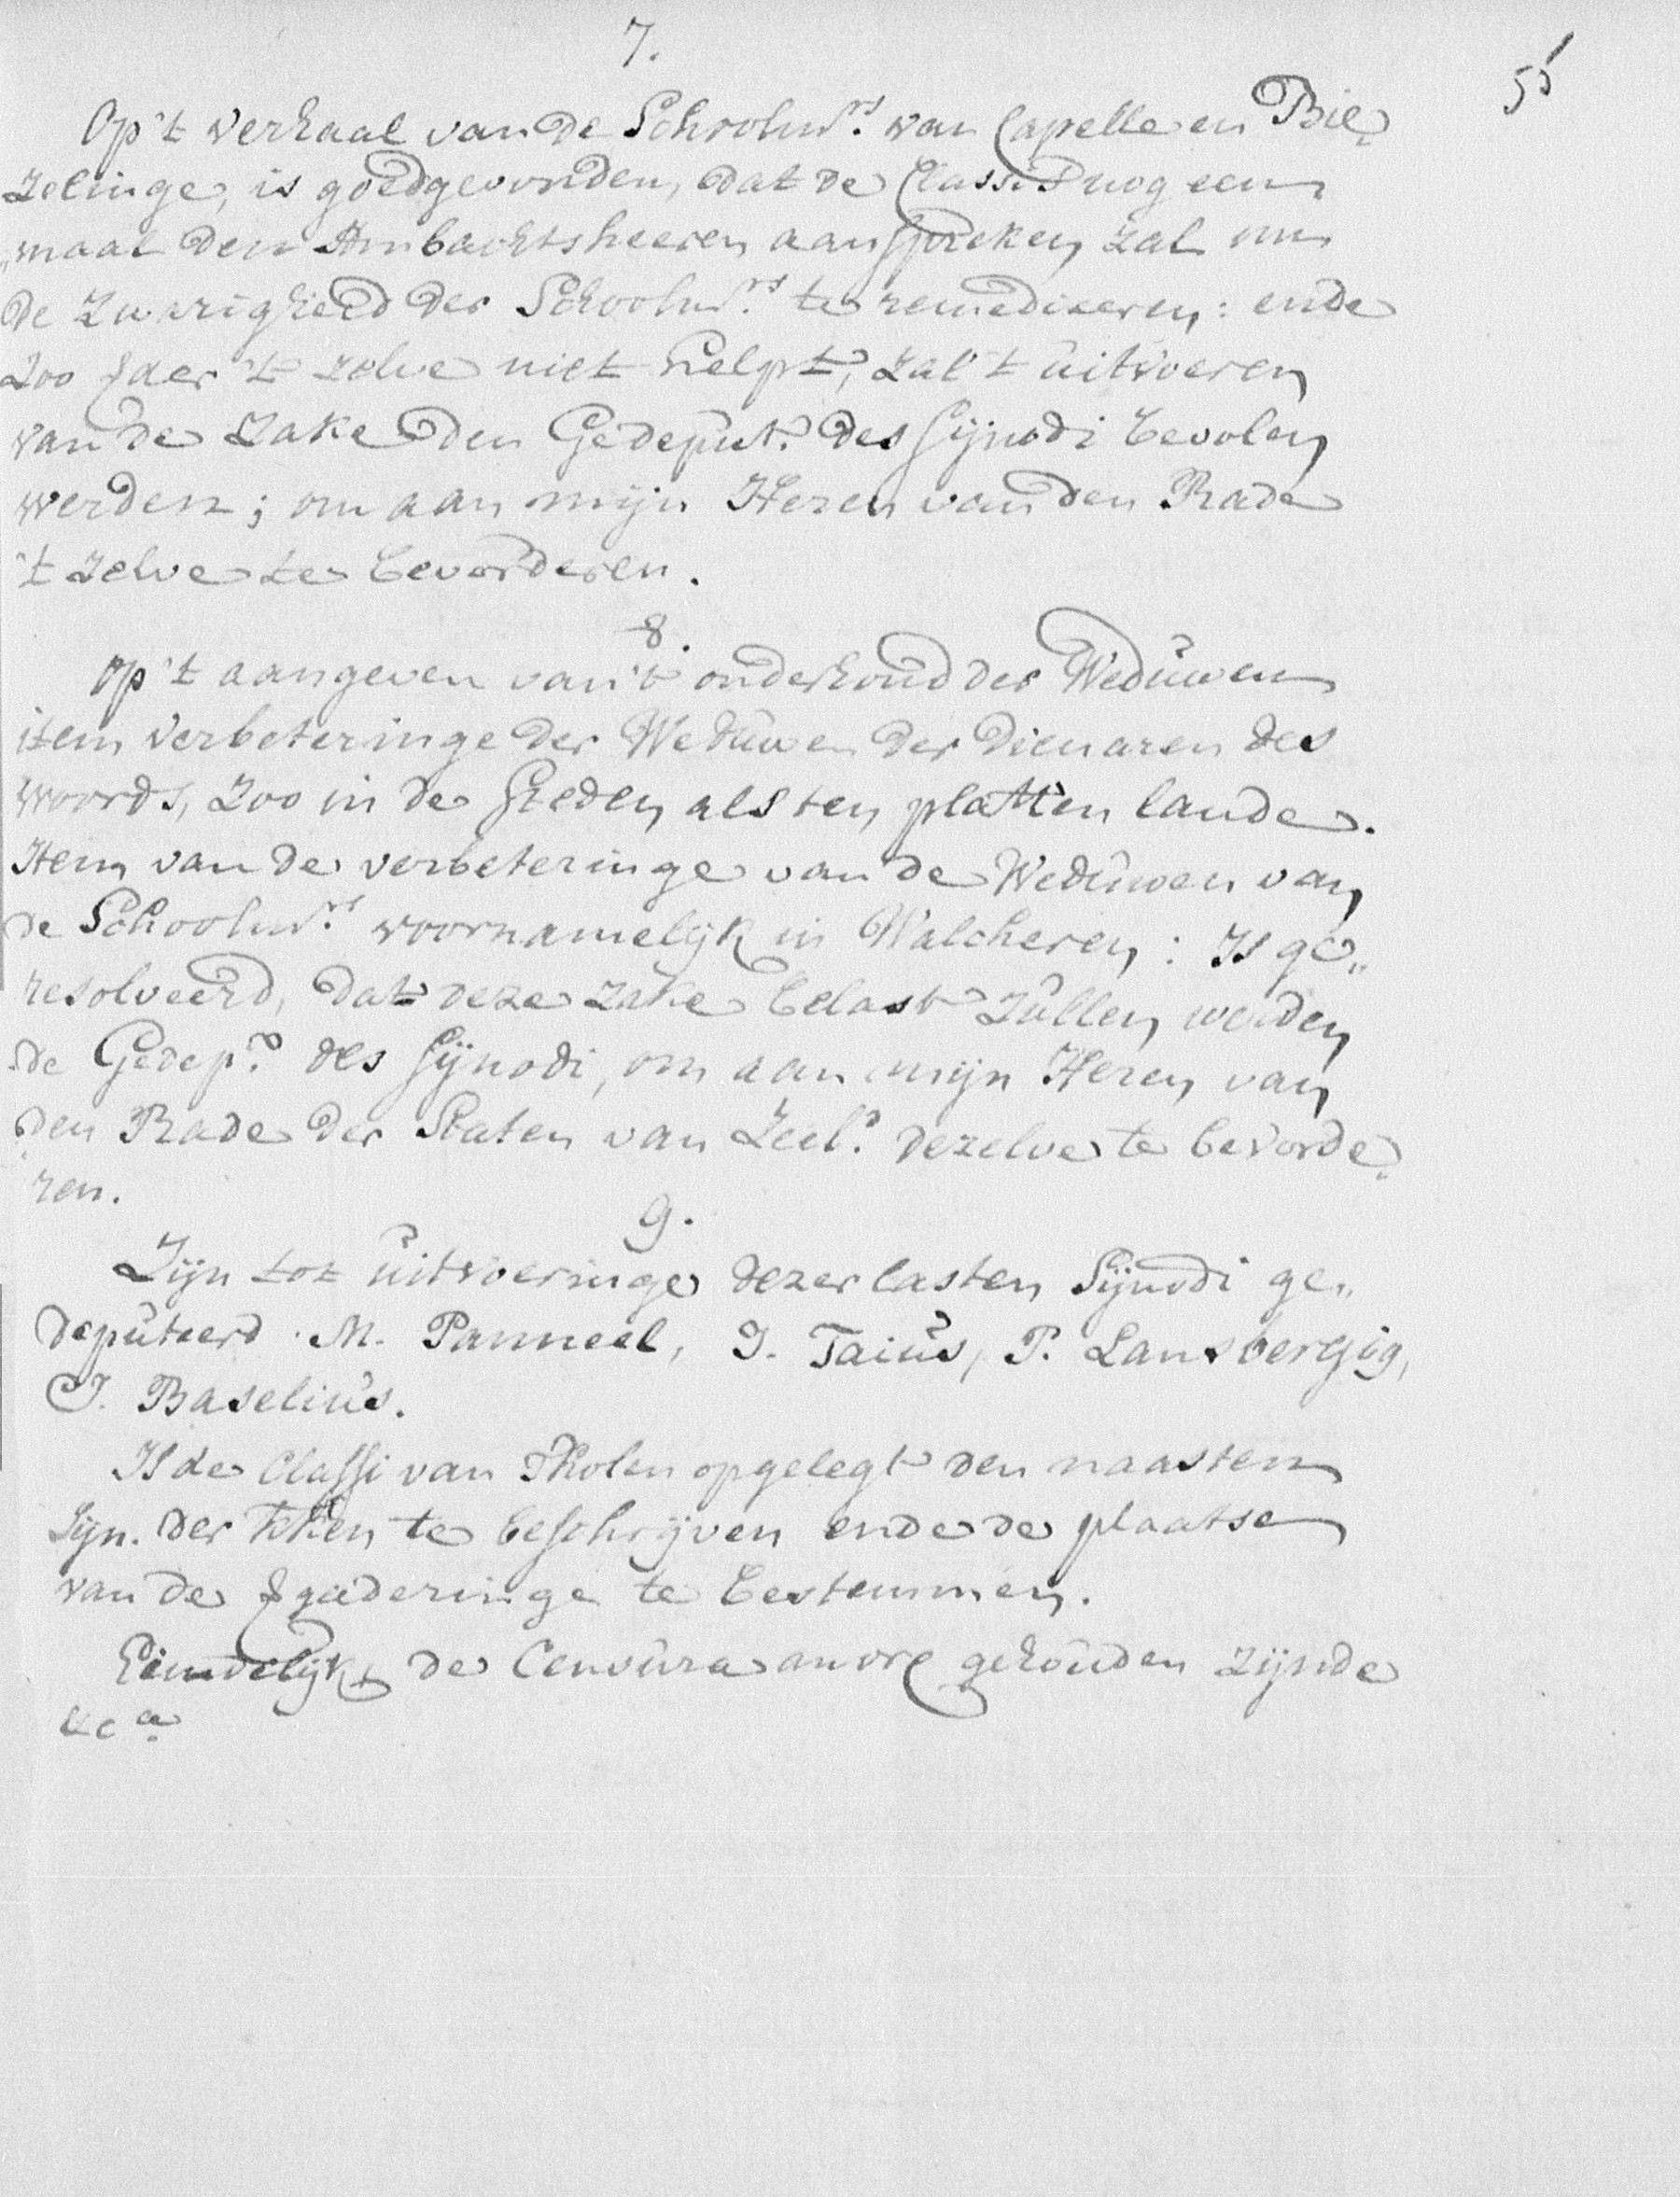 7.
55
Op't verhaal van de Schoolmrs. van Capelle en Bie„
zelinge, is goedgevonden, dat de Classis nog een
„maal den Ambachtsheeren aanspreken zal om
de zwarigheid der Schoolmrs. te remedieeren: ende
Zoo der 't zelve niet helpt, zal 't uitvoeren
van de zake den Gedeput. des Synodi bevolen
werden; om aan mijn Heren van den Rade
't zelve te bevorderen.
8.
Op 't aangeven van 't onderhoud der Weduwen
item verbeteringe der Weduwen der Dienaren des
woords, zoo in de Steden, als ten platten lande.
Item van de verbeteringe van de Weduwen van
de Schoolmrs. voornamelijk in Walcheren: Is ge„
resolveerd, dat deze zake belast zullen werden
de Gedep. des Synodi, om aan mijn Heren van
den Rade der Staten van Zeeld. dezelve te bevorde„
ren.
9.
Zijn tot uitvoeringe dezer lasten Synodi ge„
deputeerd. M. Panneel, J. Taius, P. Lansbergig,
J. Baselius.
Is de Classi van Tholen opgelegt den naasten
Syn. der kken te beschrijven ende de plaatse
van de gaderinge te bestemmen.
Eindelijk de Censura gehouden zijnde
&ca